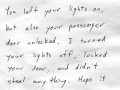 You left your lights on,
but also your passenger
door unlocked. I turned
your lights off, locked
your door, and didn't
steal anything. Hope it